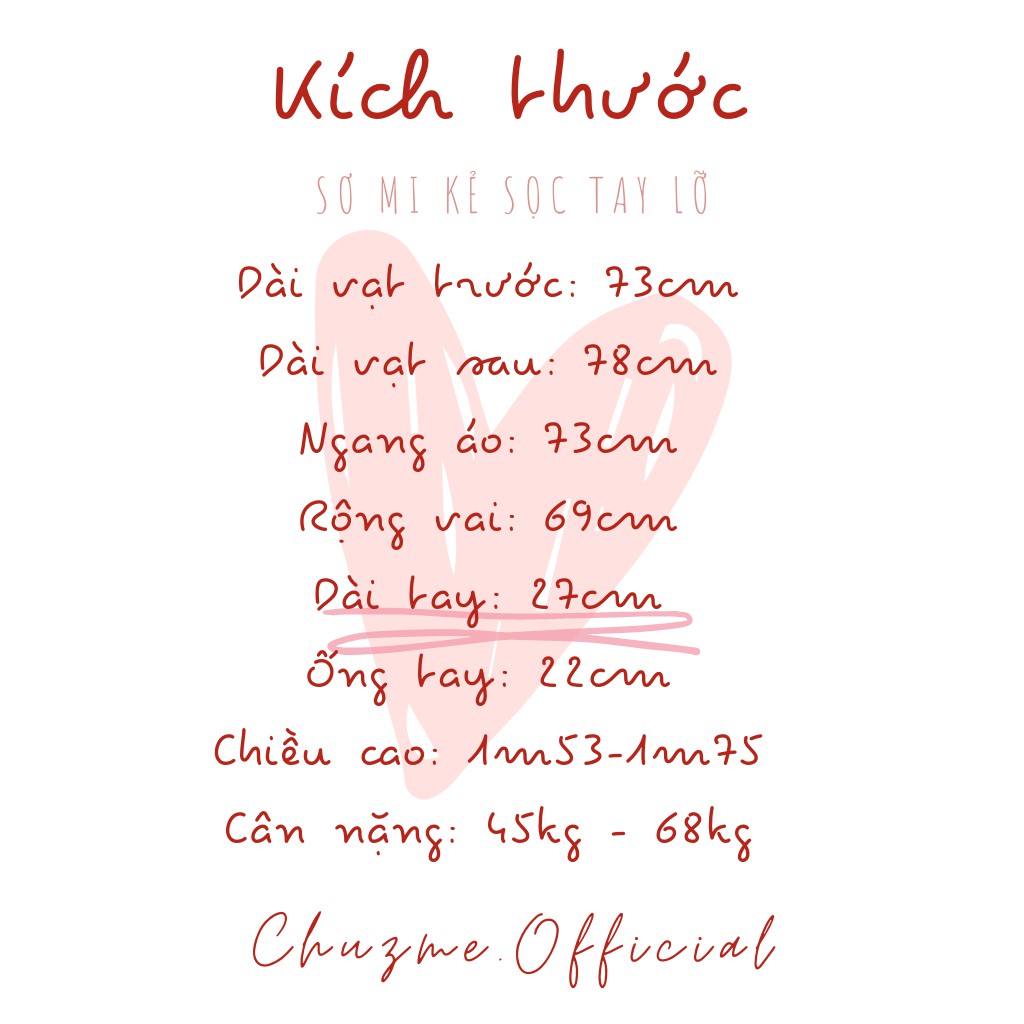 Kích thước
SƠ MI KẺ SỌC TAY LỠ
Dài vạt trước: 73cm
Dài vạt sau: 78cm
Ngang áo: 73cm
Rộng vai: 69cm
Dài tay: 27cm
Ống tay: 22cm
Chiều cao: 1m53-1m75
Cân nặng: 45kg - 68kg
Chuzme.Official